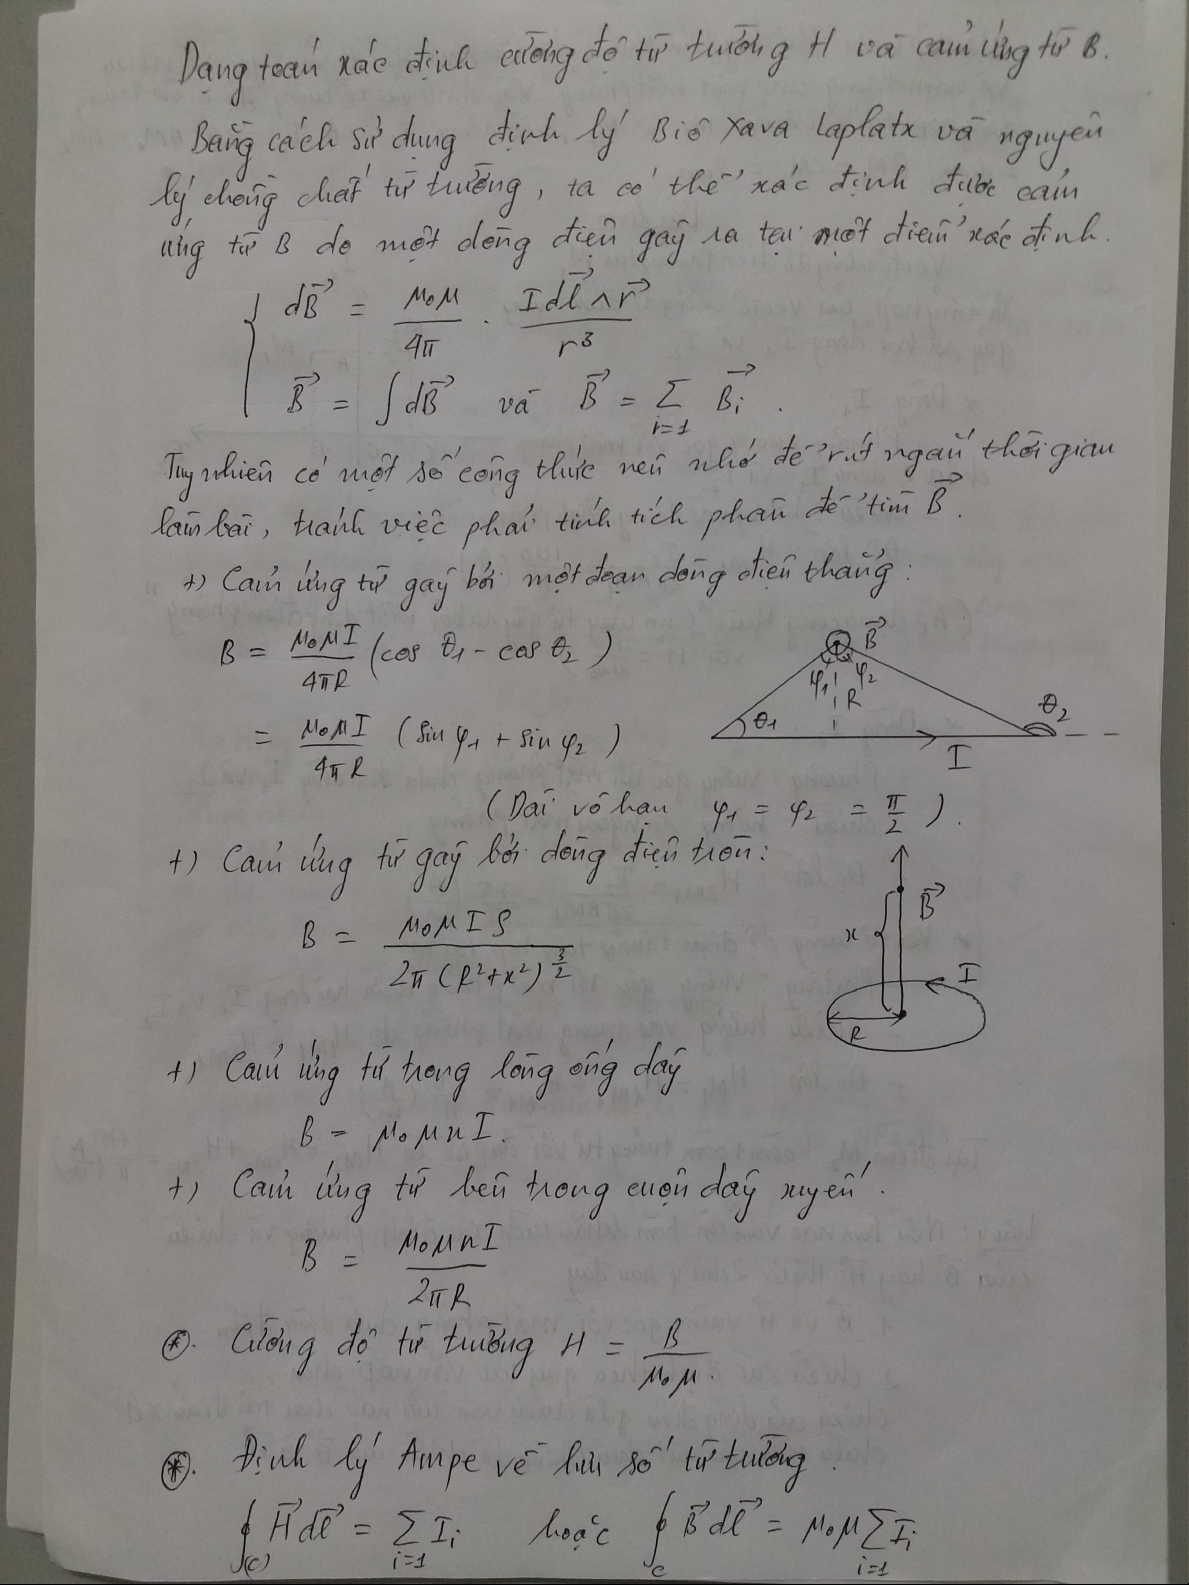 Dạng toán xác định cường độ từ trường H và cảm ứng từ B.
Bằng cách sử dụng định lý Biô Xava Laplatx và nguyên
lý chồng chất từ trường, ta có thể xác định được cảm
ứng từ B do một dòng điện gây ra tại một điểm xác định.
dB⃗ = μ₀μ/4π . I dl⃗ ∧ r⃗ / r³
B⃗ = ∫ dB⃗ và B⃗ = Σ_{i=1} B⃗ᵢ .
Tuy nhiên có một số công thức nên nhớ để rút ngắn thời gian
làm bài, tránh việc phải tính tích phân để tìm B⃗.
+) Cảm ứng từ gây bởi một đoạn dòng điện thẳng :
B = μ₀μI/4πR (cos θ₁ - cos θ₂)
= μ₀μI/4πR (sin φ₁ + sin φ₂)
B⃗
φ₁ φ₂
R
θ₁ θ₂
I
(Dài vô hạn φ₁ = φ₂ = π/2 ).
+) Cảm ứng từ gây bởi dòng điện tròn :
B = μ₀μIS / 2π(R²+x²)^{3/2}
B⃗
x
I
R
+) Cảm ứng từ trong lòng ống dây
B = μ₀μnI.
+) Cảm ứng từ bên trong cuộn dây xuyến .
B = μ₀μnI / 2πR
(*). Cường độ từ trường H = B/μ₀μ.
(*). Định lý Ampe về lưu số từ trường .
∮_{(C)} H⃗dl⃗ = Σ_{i=1} Iᵢ hoặc ∮_c B⃗dl⃗ = μ₀μ Σ_{i=1} Iᵢ